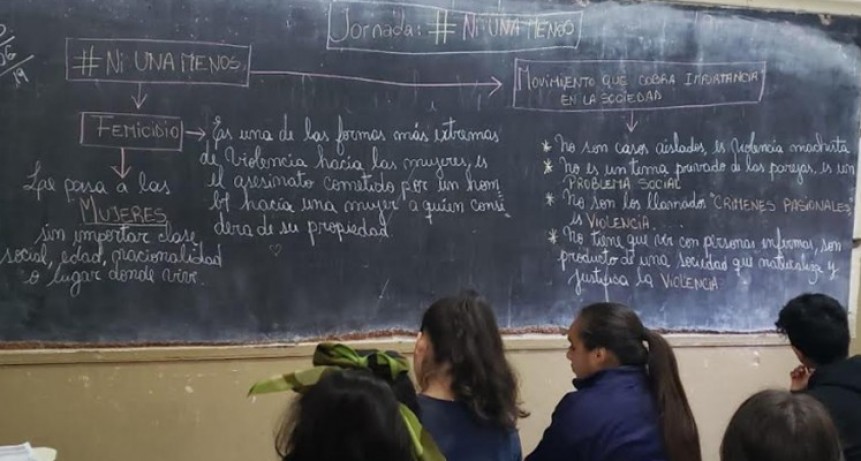 Jornada: # NI UNA MENOS
06
19
# NI UNA MENOS
MOVIMIENTO QUE COBRA IMPORTANCIA
EN LA SOCIEDAD
FEMICIDIO
Es una de las formas más extremas
de Violencia hacia las mujeres, es
el asesinato cometido por un hom
bre hacia una mujer a quien consi
dera de su propiedad
Le pasa a las
MUJERES
sin importar clase
social, edad, nacionalidad
o lugar donde vive.
* no son casos aislados, es Violencia machista
* no es un tema privado de las parejas, es un
PROBLEMA SOCIAL
* no son los llamados "CRÍMENES PASIONALES"
es VIOLENCIA....
* no tiene que ver con personas enfermas, son
producto de una sociedad que naturaliza y
justifica la VIOLENCIA